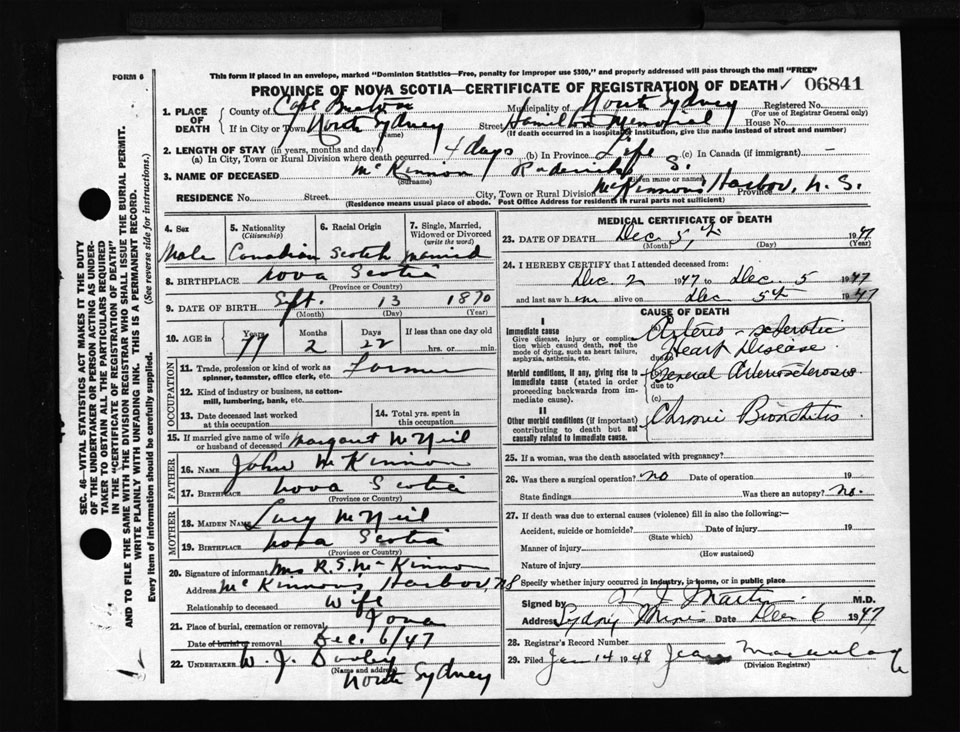 FORM 6
This form if placed in an envelope, marked "Dominion Statistics—Free, penalty for improper use $300," and properly addressed will pass through the mail "FREE"
PROVINCE OF NOVA SCOTIA—CERTIFICATE OF REGISTRATION OF DEATH ✓ 06841
1. PLACE OF DEATH County of Cape Breton Municipality of North Sydney Registered No. (For use of Registrar General only)
If in City or Town North Sydney (Name) Street Hamilton Memorial House No.
(If death occurred in a hospital or institution, give the name instead of street and number)
2. LENGTH OF STAY (in years, months and days)
(a) In City, Town or Rural Division where death occurred 4 days (b) In Province Life (c) In Canada (if immigrant) —
3. NAME OF DECEASED McKinnon (Surname) Roderick S. (Given name or names)
RESIDENCE No. Street City, Town or Rural Division McKinnon's Harbor, N.S. Province
(Residence means usual place of abode. Post Office Address for residents in rural parts not sufficient)
4. Sex Male
5. Nationality (Citizenship) Canadian
6. Racial Origin Scotch
7. Single, Married, Widowed or Divorced (write the word) Married
8. BIRTHPLACE Nova Scotia (Province or Country)
9. DATE OF BIRTH Sept. 13 1870
(Month) (Day) (Year)
10. AGE Years Months Days If less than one day old
77 2 22 hrs. or min.
OCCUPATION
11. Trade, profession or kind of work as spinner, teamster, office clerk, etc. Farmer
12. Kind of industry or business, as cotton-mill, lumbering, bank, etc.
13. Date deceased last worked at this occupation
14. Total yrs. spent in this occupation
15. If married give name of wife or husband of deceased Margaret McNeil
FATHER
16. NAME John McKinnon
17. BIRTHPLACE Nova Scotia (Province or Country)
MOTHER
18. MAIDEN NAME Lucy McNeil
19. BIRTHPLACE Nova Scotia (Province or Country)
20. Signature of informant Mrs R. S. McKinnon
Address McKinnons Harbor, NS
Relationship to deceased Wife
21. Place of burial, cremation or removal Iona
Date of burial or removal Dec. 6/47
22. UNDERTAKER W. J. Dooley
(Name and address) North Sydney
MEDICAL CERTIFICATE OF DEATH
23. DATE OF DEATH Dec 5th 1947
(Month) (Day) (Year)
24. I HEREBY CERTIFY that I attended deceased from:
Dec 2 1947 to Dec. 5 1947
and last saw him alive on Dec 5th 1947
CAUSE OF DEATH
I
Immediate cause
Give disease, injury or complication which caused death, not the mode of dying, such as heart failure, asphyxia, asthenia, etc.
Arterio-sclerotic
Heart Disease
due to
Morbid conditions, if any, giving rise to immediate cause (stated in order proceeding backwards from immediate cause).
General Arteriosclerosis
due to
(c)
II
Other morbid conditions (if important) contributing to death but not causally related to immediate cause.
Chronic Bronchitis
25. If a woman, was the death associated with pregnancy?
26. Was there a surgical operation? no Date of operation 19
State findings Was there an autopsy? no.
27. If death was due to external causes (violence) fill in also the following:—
Accident, suicide or homicide? (State which) Date of injury 19
Manner of injury (How sustained)
Nature of injury
Specify whether injury occurred in industry, in home, or in public place
Signed by J Martin M.D.
Address Sydney Mines Date Dec 6 1947
28. Registrar's Record Number
29. Filed Jan 14 1948 Jean
(Division Registrar)
SEC. 46—VITAL STATISTICS ACT MAKES IT THE DUTY
OF THE UNDERTAKER OR PERSON ACTING AS UNDER-
TAKER TO OBTAIN ALL THE PARTICULARS REQUIRED
IN THE "CERTIFICATE OF REGISTRATION OF DEATH"
AND TO FILE THE SAME WITH THE DIVISION REGISTRAR WHO SHALL ISSUE THE BURIAL PERMIT.
WRITE PLAINLY WITH UNFADING INK. THIS IS A PERMANENT RECORD.
Every item of information should be carefully supplied. (See reverse side for instructions.)